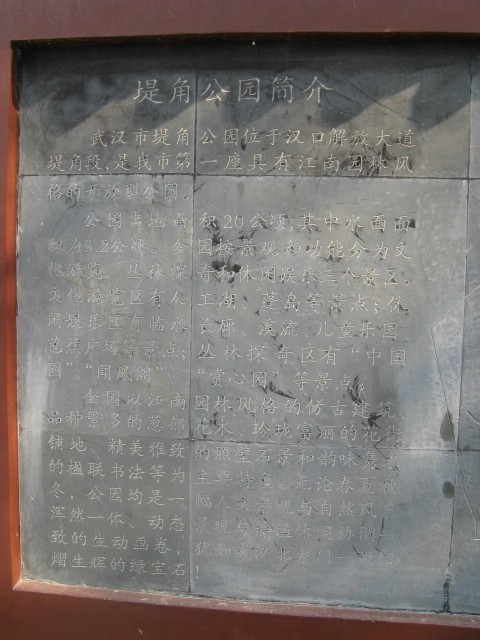 堤角公园简介
武汉市堤角公园位于汉口解放大道
堤角段,是我市第一座具有江南园林风
格的开放型公园。
公园占地面积20公顷,其中水面面
积为3.2公顷。全园按景观和功能分为文
化游览、丛林探奇和休闲娱乐三个景区。
文化游览区有人工湖、蓬岛等景点;休
闲娱乐区有临水长廊、溪流、儿童乐园、
芭蕉广场等景点;丛林探奇区有“中国
园”、“闻风阁”、“赏心园”等景点。
全园以江南园林风格的仿古建筑、
品种繁多的葱郁花木、玲珑富丽的花街
铺地、精美雅致的照壁石景和韵味隽永
的楹联书法等为主要特色。无论春夏秋
冬,公园均是一幅人文景观与自然风景
浑然一体、动态景观与休闲协调
致的生动画卷,犹如大门一颗
熠生辉的绿宝石!